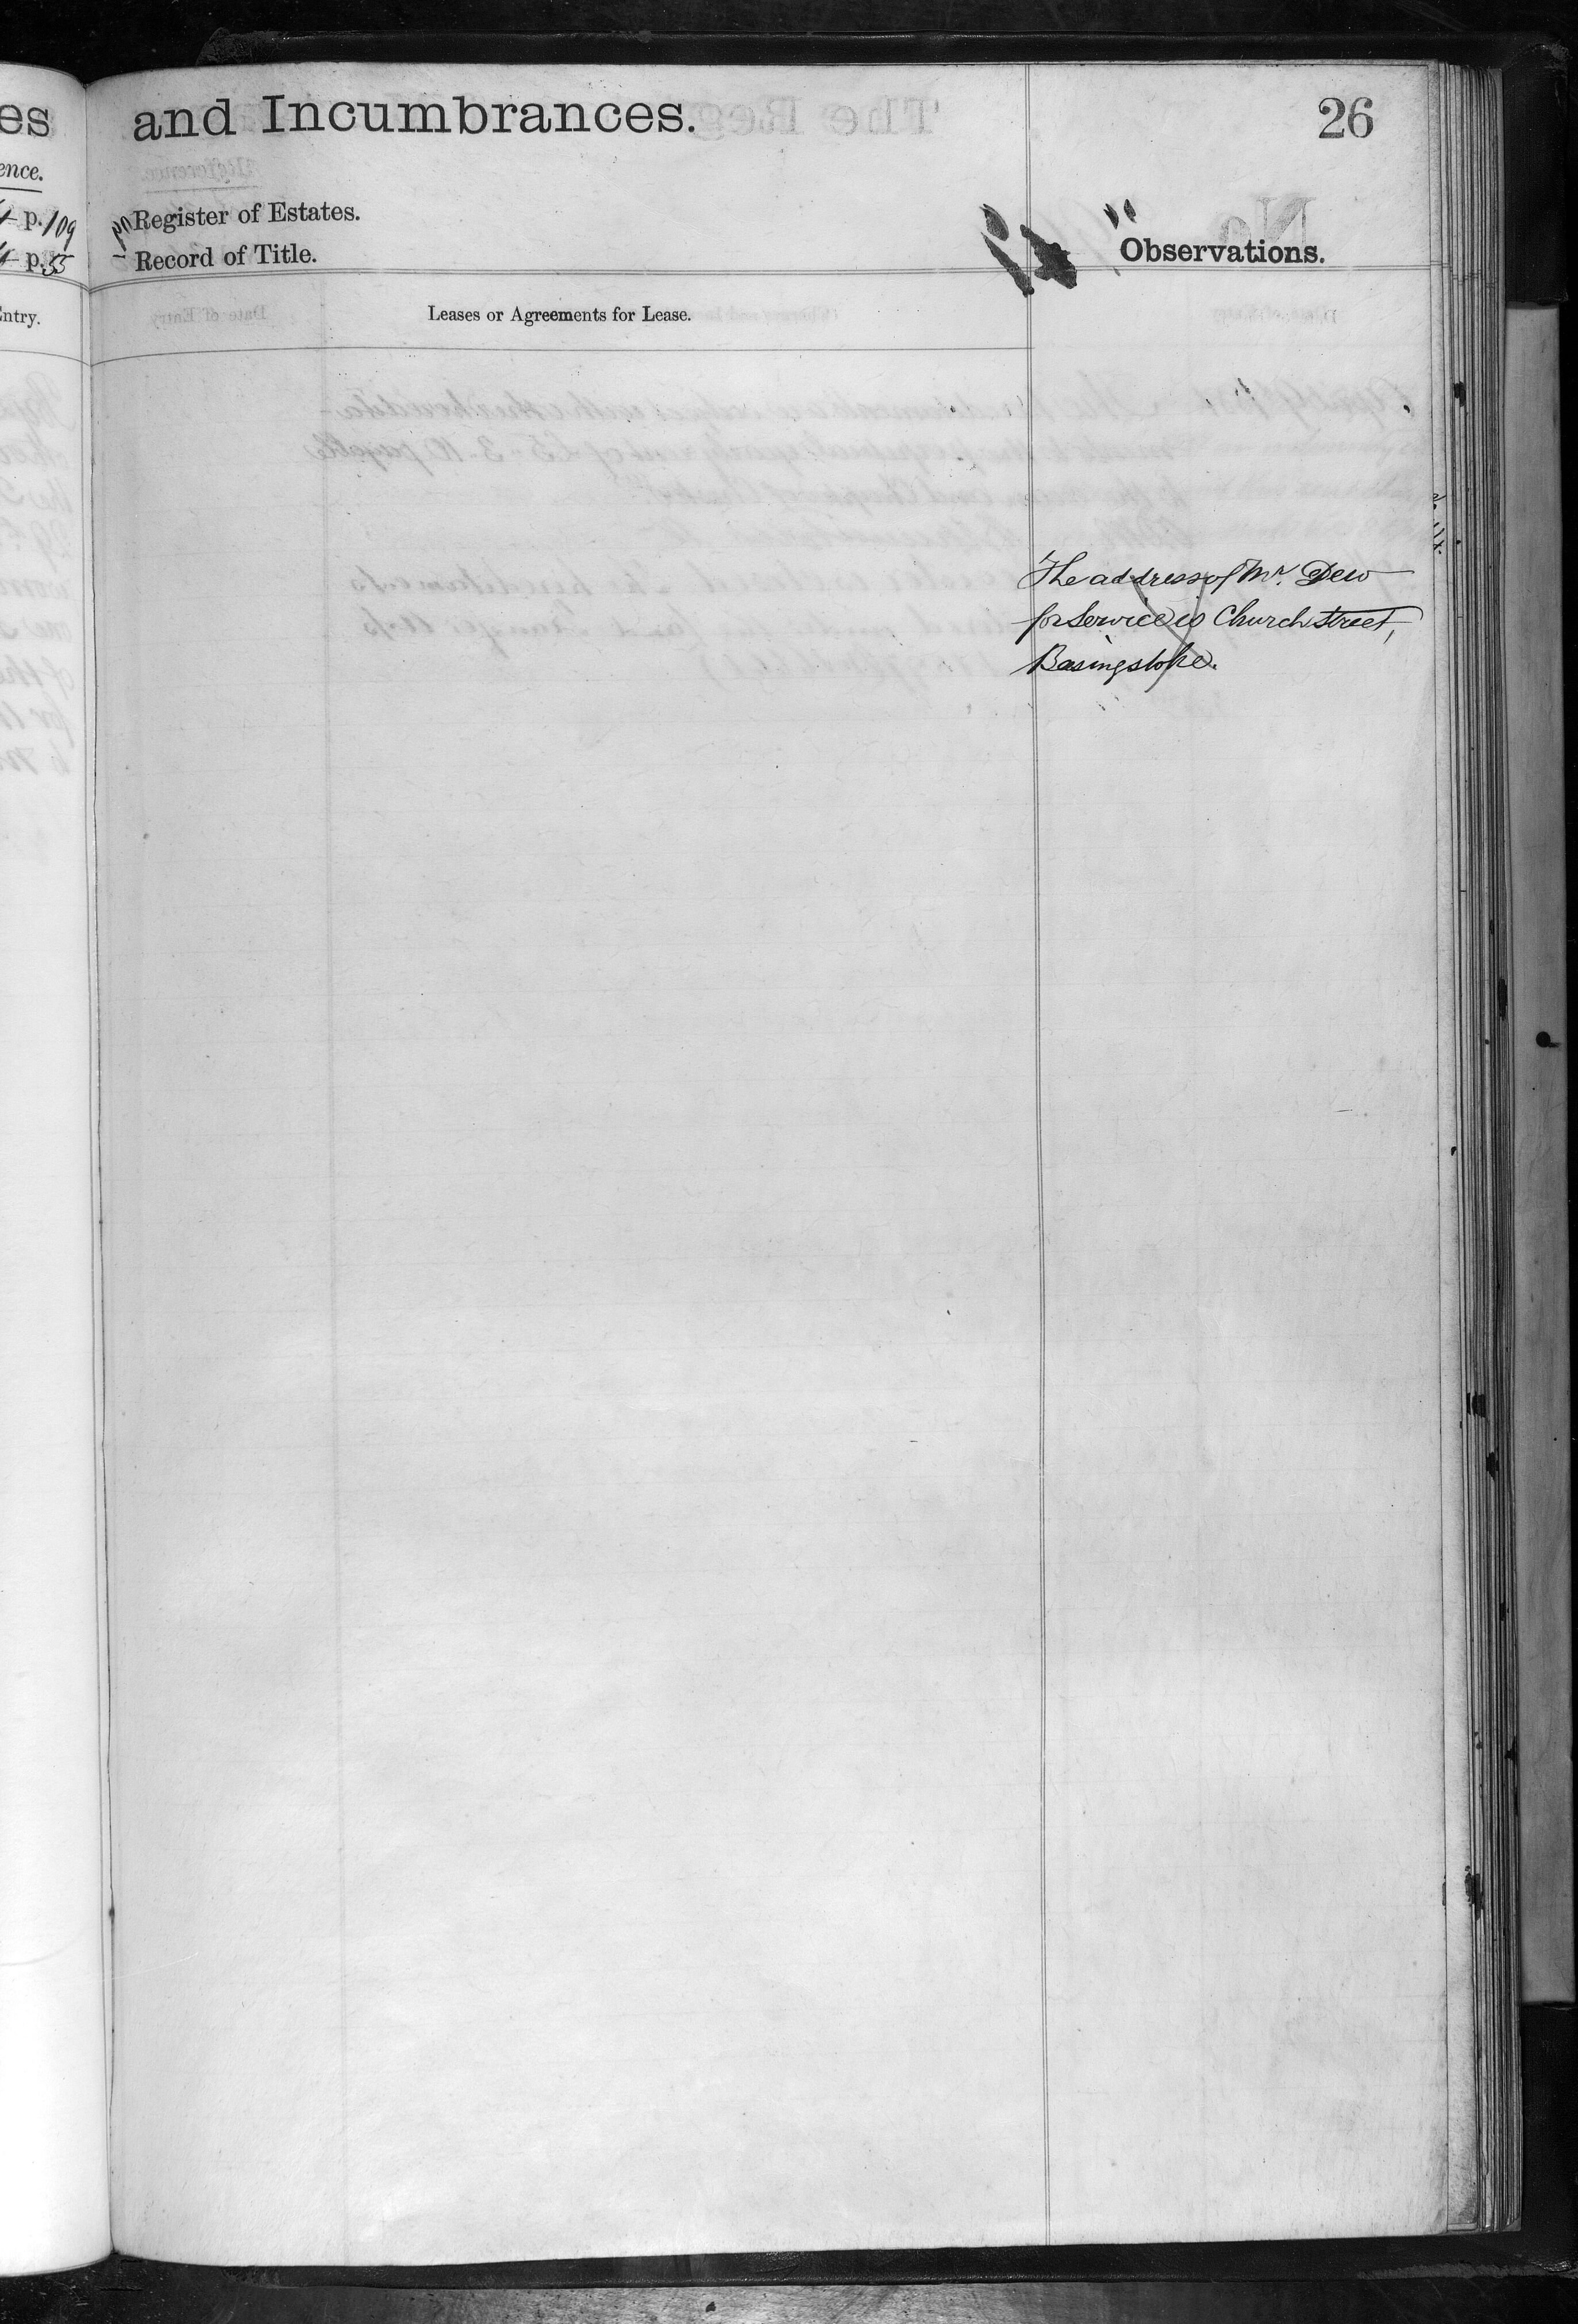 es and Incumbrances. 26
ence.
p. 109 Register of Estates.
p. 55 Record of Title. Observations.
Entry. Leases or Agreements for Lease.
The address of Mr. Dew
for Service is Church Street,
Basingstoke.